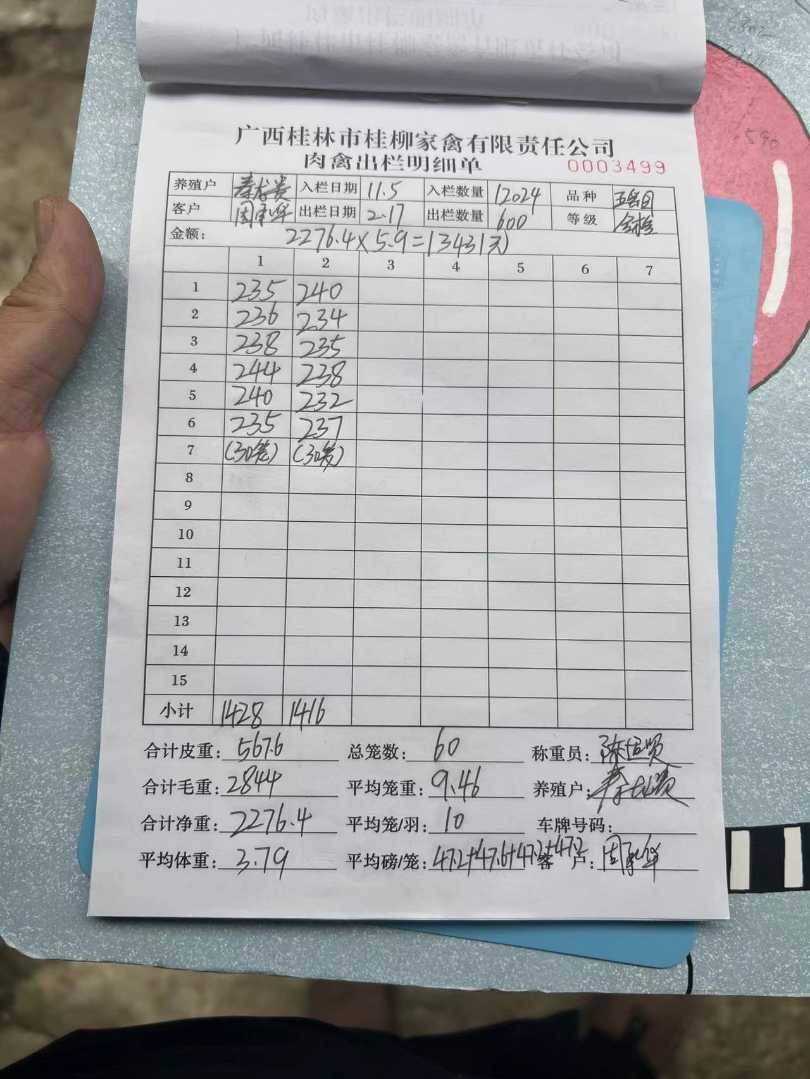 广西桂林市桂柳家禽有限责任公司
肉禽出栏明细单 0003499
养殖户 入栏日期 11.5 入栏数量 12024 品种
客户 周承华 出栏日期 2.17 出栏数量 600 等级
金额: 2276.4×5.9=13431元
1 2 3 4 5 6 7
1 235 240
2 236 234
3 238 235
4 244 238
5 240 232
6 235 237
7 (30笼) (30笼)
8
9
10
11
12
13
14
15
小计 1428 1416
合计皮重: 567.6 总笼数: 60 称重员:
合计毛重: 2844 平均笼重: 9.46 养殖户:
合计净重: 2276.4 平均笼/羽: 10 车牌号码:
平均体重: 3.79 平均磅/笼: 47.2+47.6+47.2+47.2 客户: 周承华